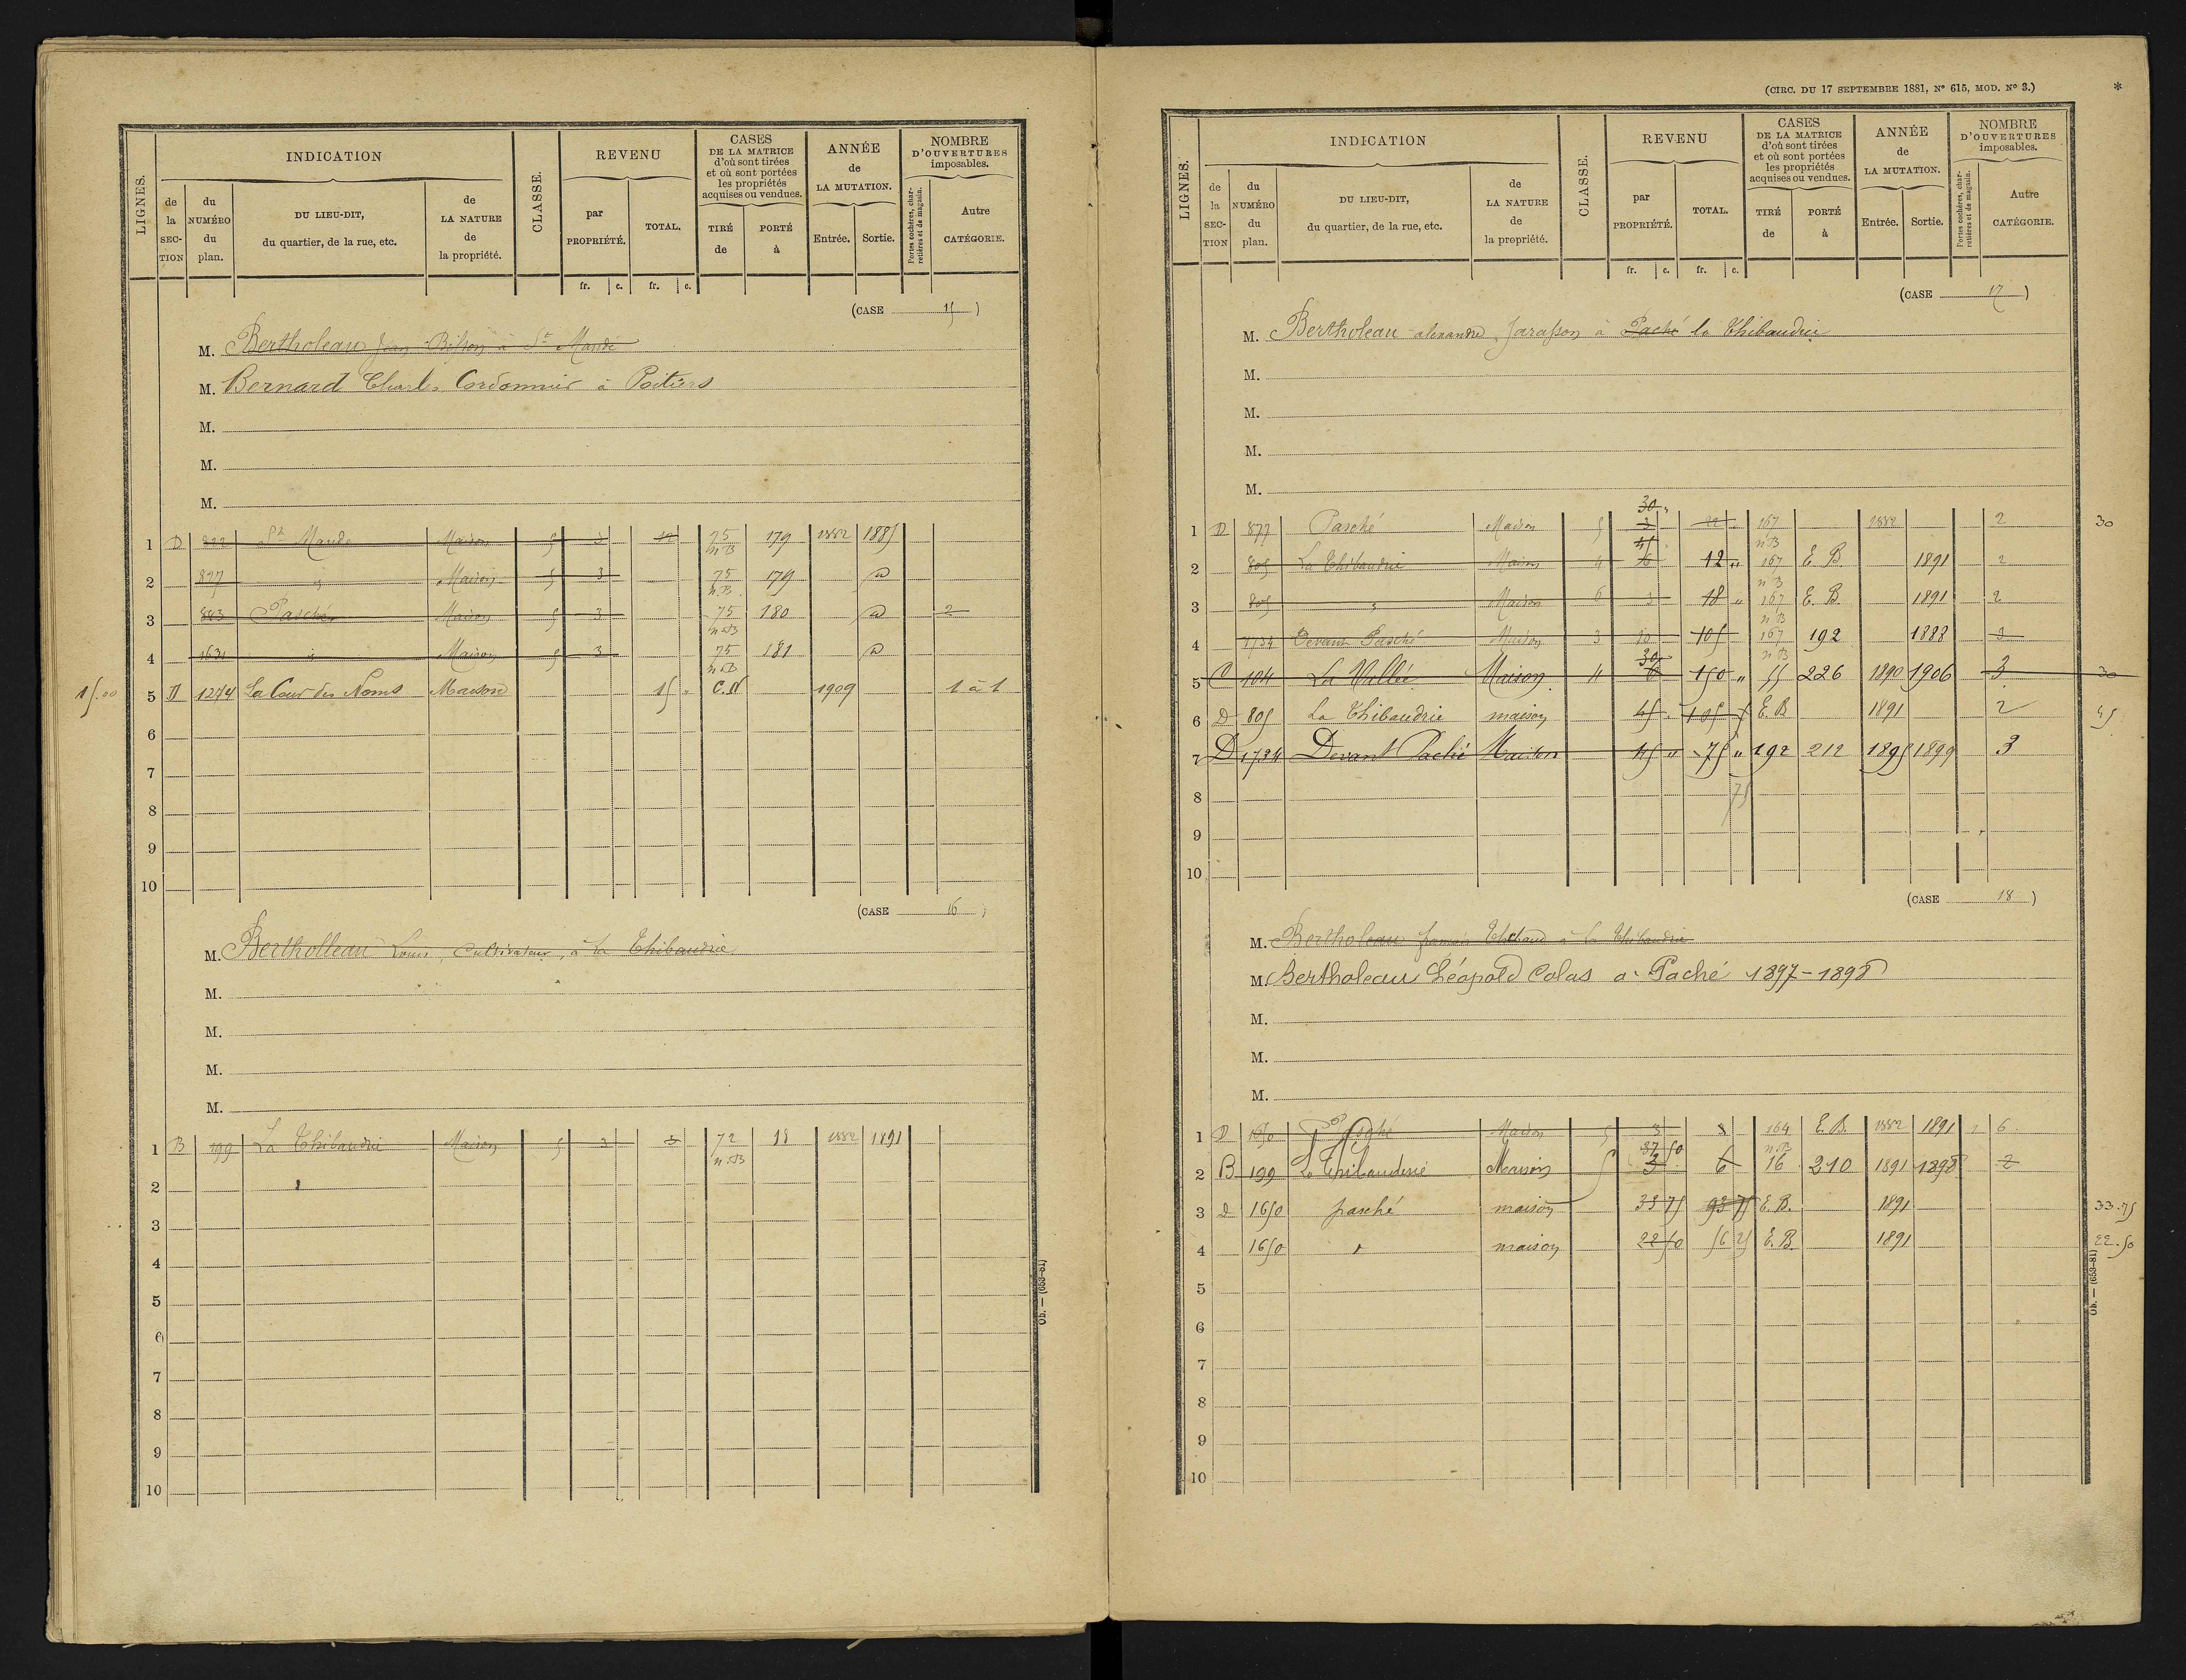 LIGNES.
INDICATION
de la SECTION
du NUMÉRO du plan.
DU LIEU-DIT, du quartier, de la rue, etc.
de LA NATURE de la propriété.
CLASSE.
REVENU
par PROPRIÉTÉ.
TOTAL.
CASES DE LA MATRICE d'où sont tirées et où sont portées les propriétés acquises ou vendues.
TIRÉ de
PORTÉ à
ANNÉE de LA MUTATION.
Entrée. Sortie.
NOMBRE D'OUVERTURES imposables.
Portes cochères, charretières et de magasin.
Autre CATÉGORIE.
fr. c. fr. c.
(CASE 15)
M. Bertholeau Jean Bisson à St Mandé
M. Bernard Charles Cordonnier à Poitiers
M.
M.
M.
1 D 822 St Mande Maison 5 3 12 75 n.B 179 1882 1885
2 827 " Maison 5 3 75 n.B. 179 d
3 883 Pasché Maison 5 3 75 n.B 180 d 2
4 1631 " Maison 5 3 75 n.B 181 d
15.00 5 D 1274 La Cour des Noms Maison 15 " C.N 1909 1 à 1
6
7
8
9
10
(CASE 16)
M. Bertholleau Louis, Cultivateur, à la Thibaudrie
M.
M.
M.
M.
1 B 199 La Thibaudrie Maison 5 3 3 72 n.B 18 1882 1891
2
3
4
5
6
7
8
9
10
Ob. — (653-81)
(CIRC. DU 17 SEPTEMBRE 1881, Nº 615, MOD. Nº 3.) *
LIGNES.
INDICATION
de la SECTION
du NUMÉRO du plan.
DU LIEU-DIT, du quartier, de la rue, etc.
de LA NATURE de la propriété.
CLASSE.
REVENU
par PROPRIÉTÉ.
TOTAL.
CASES DE LA MATRICE d'où sont tirées et où sont portées les propriétés acquises ou vendues.
TIRÉ de
PORTÉ à
ANNÉE de LA MUTATION.
Entrée. Sortie.
NOMBRE D'OUVERTURES imposables.
Portes cochères, charretières et de magasin.
Autre CATÉGORIE.
fr. c. fr. c.
(CASE 17)
M. Bertholeau alexandre Jarasson à Paché la Thibaudrie
M.
M.
M.
M.
1 D 877 Pasché Maison 5 3 30 " 22 167 n.B 1882 2 30
2 805 La Thibaudrie Maison 4 6 45 12 " 167 n.B E B. 1891 2
3 805 " Maison 6 3 18 " 167 n.B E. B. 1891 2
4 1734 Devant Pasché Maison 3 10 105 167 n.B 192 1888 3
5 C 104 La Vallée Maison 4 6 30 150 " 55 226 1890 1906 3 30
6 D 805 La Thibaudrie maison 45 105 E. B 1891 2 45
7 D 1734 Devant Paché Maison 45 " 75 " 192 212 1895 1899 3
8 75
9
10
(CASE 18)
M. Bertholeau françois Thibaud à la Thibaudrie
M. Bertholeau Léopold Colas a Paché 1897-1898
M.
M.
M.
1 D 1650 Pasché Maison 5 3 3 164 n.B E. B. 1882 1891 1 6
2 B 199 La Thibaudrie Maison 5 3 37 50 6 16 210 1891 1898 2
3 D 1650 pasché maison 33 75 93 75 E. B. 1891 33.75
4 1650 " maison 22 50 56 25 E. B. 1891 22.50
5
6
7
8
9
10
Ob. — (653-81)